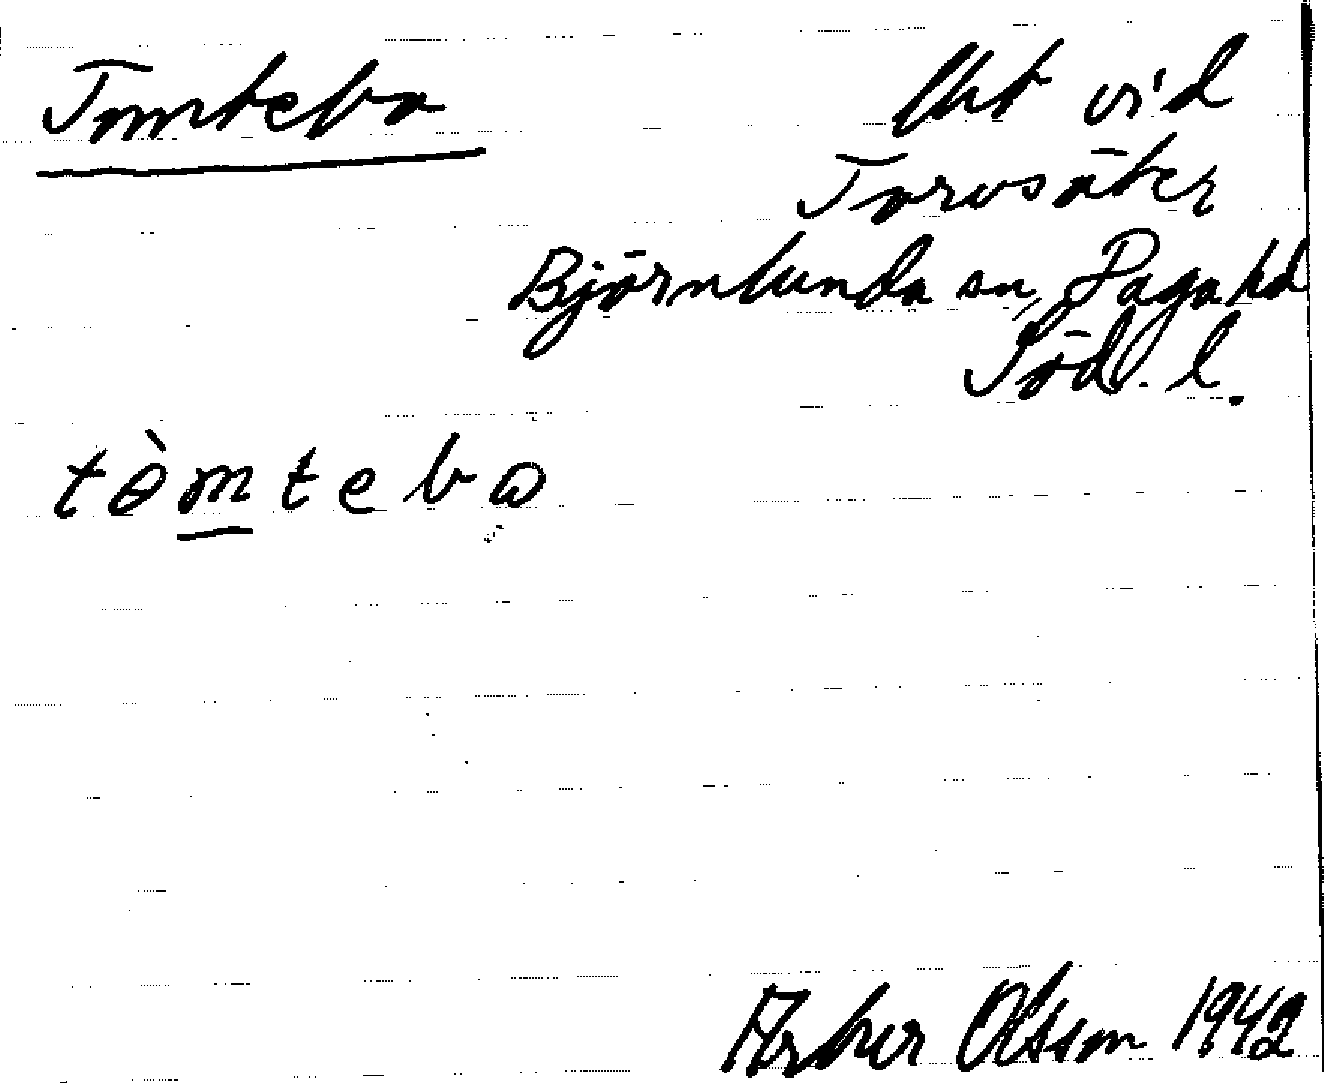 Tomtebo
Ut vid
Torvsäter
Björnlunda sn, Daga hd
Söd. l.
tòmtebω
Arthur Olsson 1942